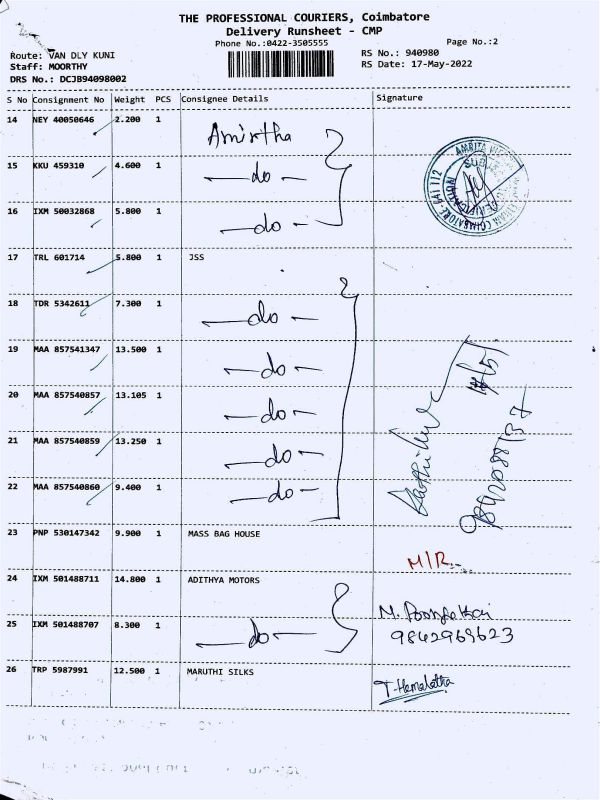 THE PROFESSIONAL COURIERS, Coimbatore
Delivery Runsheet - CMP
Phone No.:0422-3505555
Page No.:2
Route: VAN DLY KUNI
RS No.: 940980
Staff: MOORTHY
RS Date: 17-May-2022
DRS No.: DCJB94098002
S No Consignment No Weight PCS Consignee Details Signature
14 NEY 40050646 2.200 1 Amirtha
15 KKU 459310 4.600 1 —do—
16 IXM 50032868 5.800 1 —do—
17 TRL 601714 5.800 1 JSS
18 TDR 5342611 7.300 1 —do—
19 MAA 857541347 13.500 1 —do—
20 MAA 857540857 13.105 1 —do—
21 MAA 857540859 13.250 1 —do—
22 MAA 857540860 9.400 1 —do—
23 PNP 530147342 9.900 1 MASS BAG HOUSE
M/R
24 IXM 501488711 14.800 1 ADITHYA MOTORS
25 IXM 501488707 8.300 1 —do—
9842969623
26 TRP 5987991 12.500 1 MARUTHI SILKS T-Hemalatha